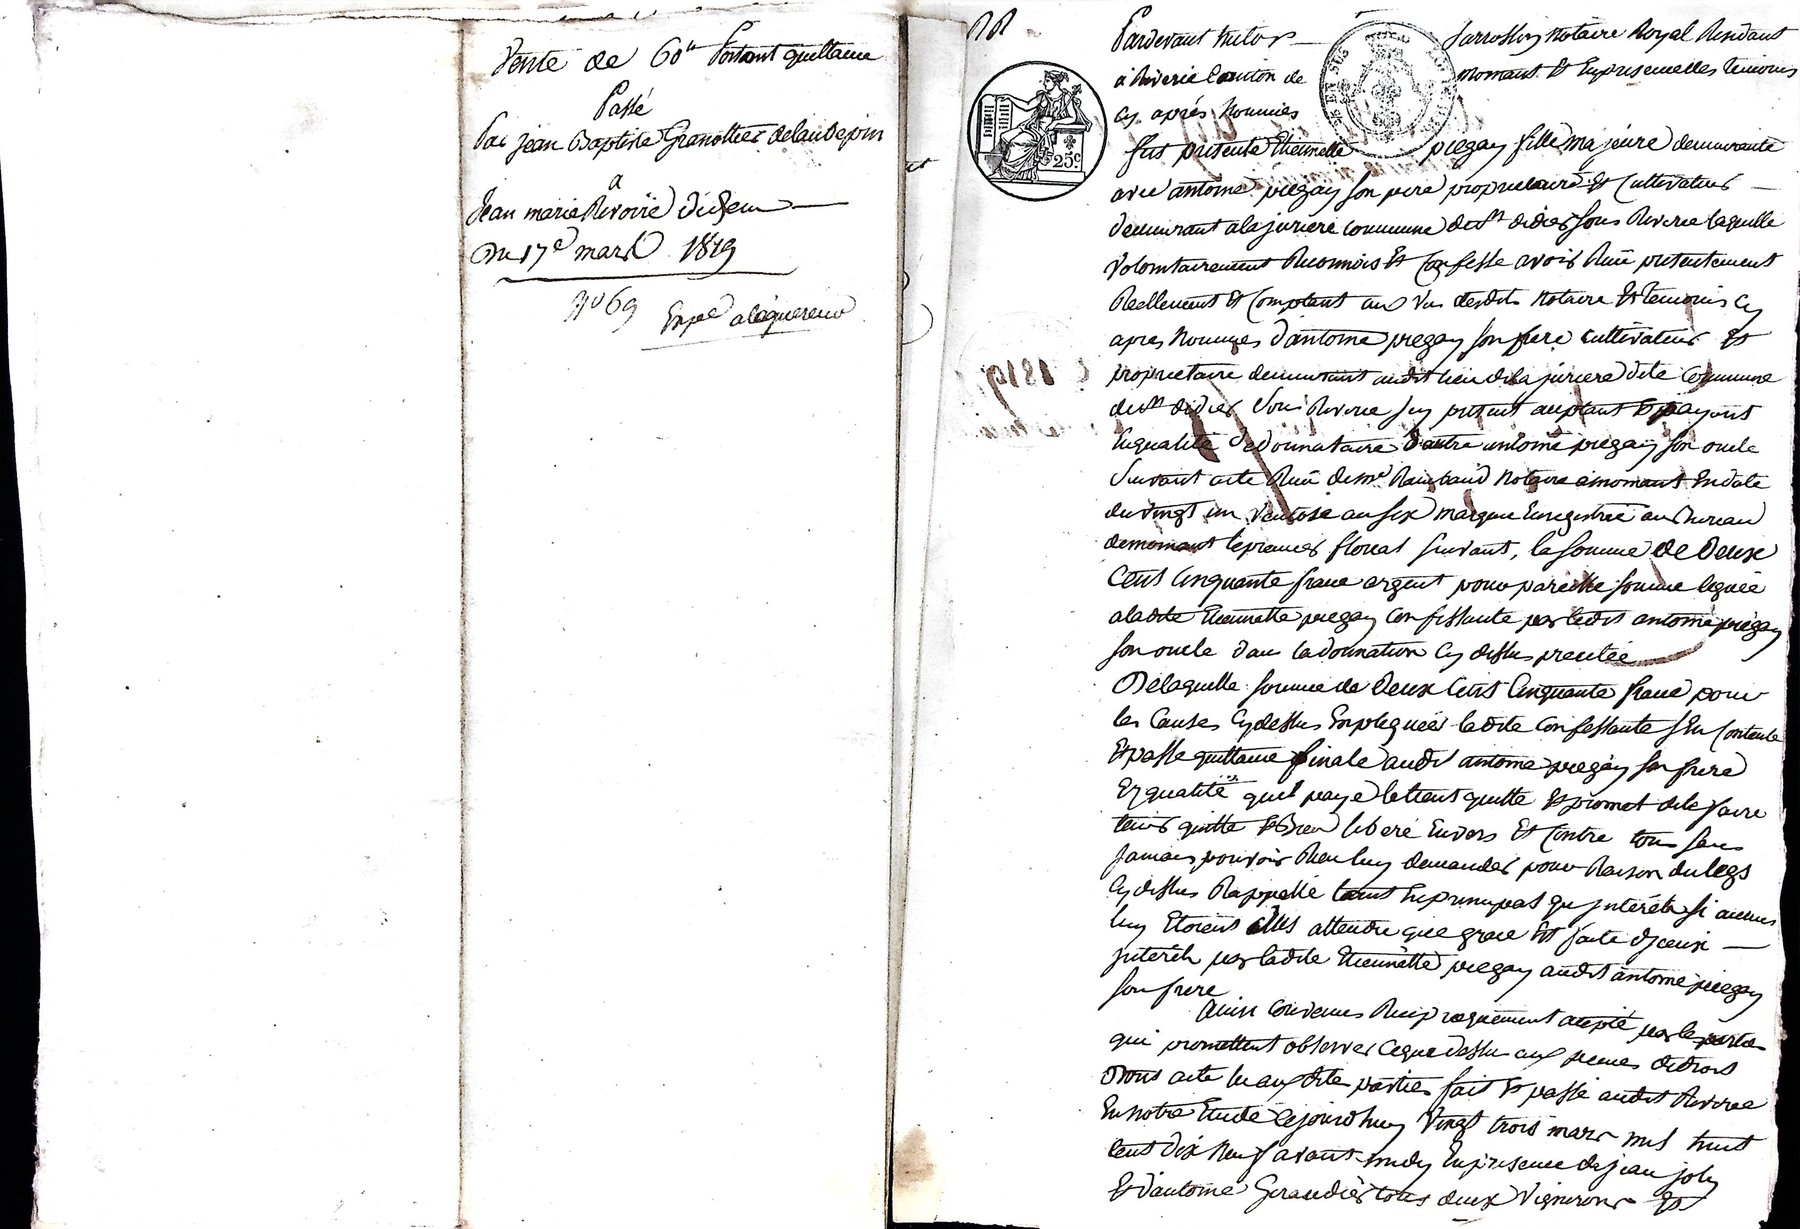 Vente de 60# Portant quittance
Passé
Par jean Baptiste Granottier delaubepin
a
Jean marie Rivoire
Du 17e mars 1819
No 69
Pardevant
Notaire Royal Residant
à Riverie Canton de
mornant Et En presence des temoins
cy après Nommés
fut presente Etiennette piegay fille majeure demeurante
25c
avec antoine piegay son pere propriétaire Et Cultivateur
demeurant a la juriere commune de st didier sous Riverie laquelle
volontairement Reconnois Et Confesse avoir Reçu presentement
Reellement Et Comptant aux vus desdits Notaire Et temoins cy
apres Nommés d'antoine piegay son frere cultivateur Et
proprietaire demeurant audit lieu de la juriere dite Commune
de st didier sous Riverie Icy present aceptant Et payant
En qualité de Donnataire d'autre antoine piegay son oncle
Suivant acte Reçu de me Raimbaud Notaire a mornant En date
du vingt un ventose an six Enregistré au Bureau
de mornant le premier floreal suivant, la somme de Deux
Cent Cinquante franc argent pour pareille somme leguée
a ladite Etiennette piegay Confessante par ledit antoine piegay
son oncle dans la donnation cy dessus precitée
De laquelle somme de Deux Cent Cinquante franc pour
les Causes cy dessus Expliquées ladite Confessante s'En Contente
Et passe quittance finale audit antoine piegay son frere
En qualité qu'il paye le tient quitte Et promet de le faire
tenir quitte Et Bien liberé Envers Et Contre tous sans
jamais pouvoir Rien luy demander pour Raison du legs
Cy dessus Rappellé tant En principal qu'intérêts si aucuns
luy Etoient dus attendu que grace Est faite d'iceux
interêts par ladite Etiennette piegay audit antoine piegay
son frere
Ainsi Convenus Reciproquement acepté par les parties
qui promettent observer ce que dessus aux peines de droit
Dont acte lu aux dites parties fait Et passé audit Riverie
En Notre Etude le jourd'huy Vingt trois mars mil huit
Cent dix Neuf avant midy En presence de jean joly
Et d'antoine Giraudier tous deux Vignerons Et